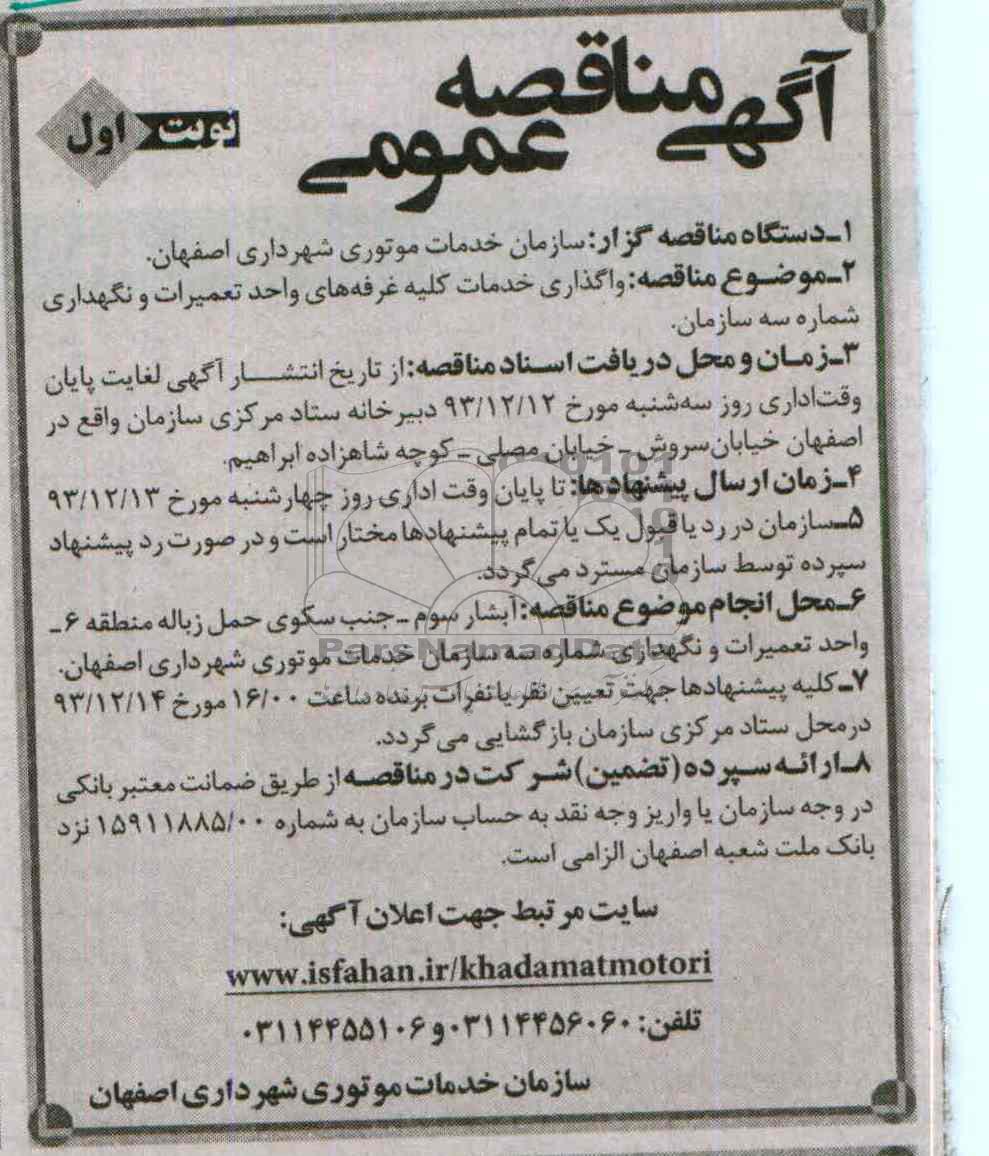 آگهی مناقصه عمومی
نوبت اول
۱ـ دستگاه مناقصه گزار: سازمان خدمات موتوری شهرداری اصفهان.
۲ـ موضوع مناقصه: واگذاری خدمات کلیه غرفه‌های واحد تعمیرات و نگهداری
شماره سه سازمان.
۳ـ زمان و محل دریافت اسناد مناقصه: از تاریخ انتشار آگهی لغایت پایان
وقت اداری روز سه‌شنبه مورخ ۹۳/۱۲/۱۲ دبیرخانه ستاد مرکزی سازمان واقع در
اصفهان خیابان سروش ـ خیابان مصلی ـ کوچه شاهزاده ابراهیم.
۴ـ زمان ارسال پیشنهادها: تا پایان وقت اداری روز چهارشنبه مورخ ۹۳/۱۲/۱۳
۵ـ سازمان در رد یا قبول یک یا تمام پیشنهادها مختار است و در صورت رد پیشنهاد
سپرده توسط سازمان مسترد می‌گردد.
۶ـ محل انجام موضوع مناقصه: آبشار سوم ـ جنب سکوی حمل زباله منطقه ۶ ـ
واحد تعمیرات و نگهداری شماره سه سازمان خدمات موتوری شهرداری اصفهان.
۷ـ کلیه پیشنهادها جهت تعیین نفر یا نفرات برنده ساعت ۱۶/۰۰ مورخ ۹۳/۱۲/۱۴
در محل ستاد مرکزی سازمان بازگشایی می‌گردد.
۸ـ ارائه سپرده (تضمین) شرکت در مناقصه از طریق ضمانت معتبر بانکی
در وجه سازمان یا واریز وجه نقد به حساب سازمان به شماره ۱۵۹۱۱۸۸۵/۰۰ نزد
بانک ملت شعبه اصفهان الزامی است.
سایت مرتبط جهت اعلان آگهی:
www.isfahan.ir/khadamatmotori
تلفن: ۰۳۱۱۴۴۵۶۰۶۰ و ۰۳۱۱۴۴۵۵۱۰۶
سازمان خدمات موتوری شهرداری اصفهان
ParsNamadData